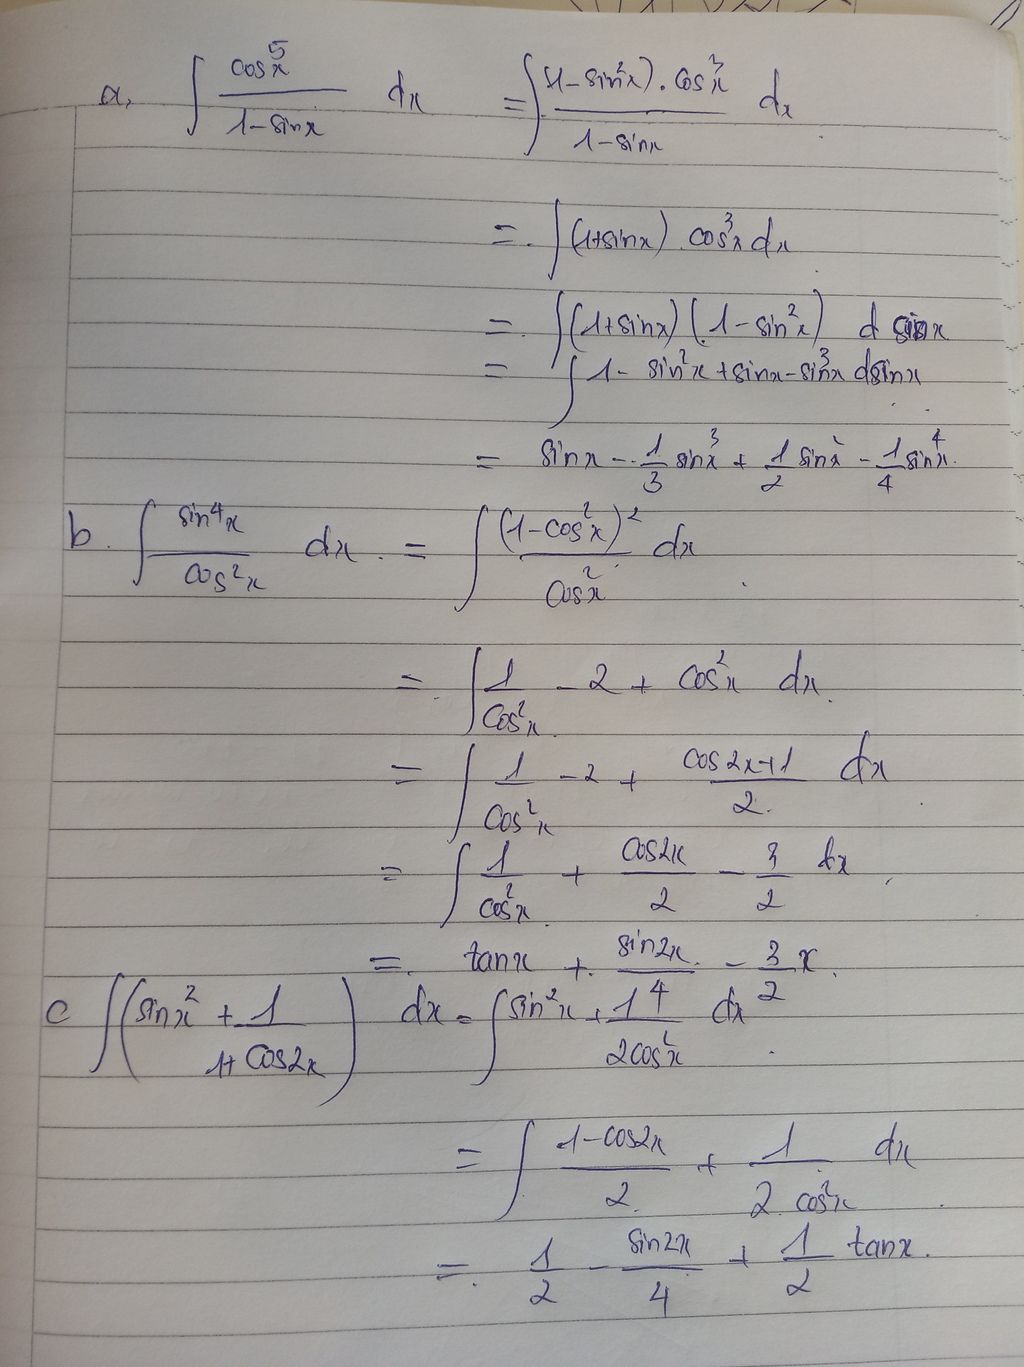 a, ∫ cos⁵x / (1-sinx) dx = ∫ (1-sin²x).cos³x / (1-sinx) dx
= ∫ (1+sinx) cos³x dx
= ∫ (1+sinx)(1-sin²x) d sinx
= ∫ 1 - sin²x + sinx - sin³x dsinx
= sinx - 1/3 sin³x + 1/2 sin²x - 1/4 sin⁴x.
b. ∫ sin⁴x / cos²x dx = ∫ (1-cos²x)² / cos²x dx
= ∫ 1/cos²x - 2 + cos²x dx
= ∫ 1/cos²x - 2 + (cos2x+1)/2 dx
= ∫ 1/cos²x + cos2x/2 - 3/2 dx
= tanx + sin2x/4 - 3/2 x.
c ∫ (sin²x + 1/(1+cos2x)) dx = ∫ sin²x + 1/(2cos²x) dx
= ∫ (1-cos2x)/2 + 1/(2cos²x) dx
= 1/2 - sin2x/4 + 1/2 tanx.